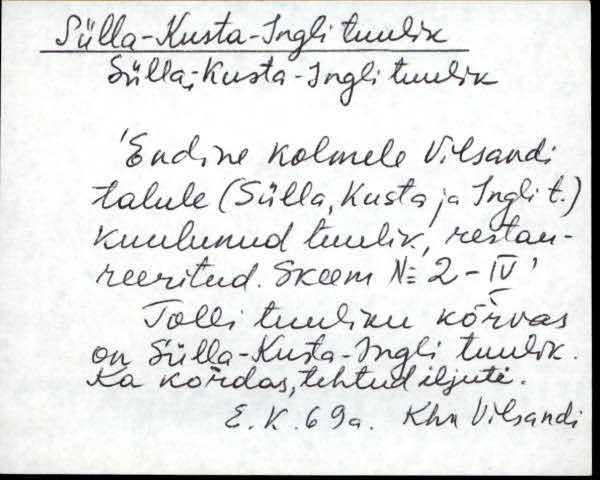 Sülla-Kusta-Ingli tuulik
Sülla-Kusta-Ingli tuulik
'Endine kolmele Vilsandi
talule (Sülla, Kusta ja Ingli t.)
kuulunud tuulik, restau-
reeritud. Skeem N= 2-IV'
Tolli tuuliku kõrvas
on Sülla-Kusta-Ingli tuulik.
Ka kõrdas, tehtud iljuti.
E. K. 69a. Khn Vilsandi